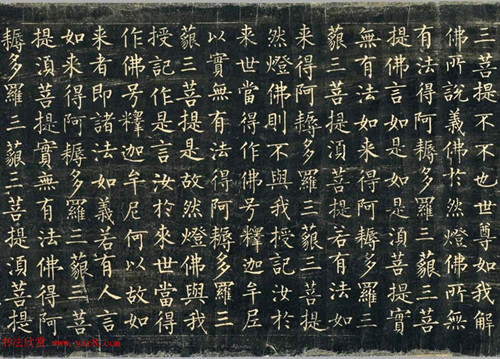 三菩提不不也世尊如我解
佛所說義佛於然燈佛所無
有法得阿耨多羅三藐三菩
提佛言如是如是須菩提實
無有法如来得阿耨多羅三
藐三菩提須菩提若有法如
来得阿耨多羅三藐三菩提
然燈佛則不與我授記汝於
来世當得作佛号釋迦牟尼
以實無有法得阿耨多羅三
藐三菩提是故然燈佛與我
授記作是言汝於来世當得
作佛号釋迦牟尼何以故如
来者即諸法如義若有人言
如来得阿耨多羅三藐三菩
提須菩提實無有法佛得阿
耨多羅三藐三菩提須菩提
书法欣赏 www.yac8.com